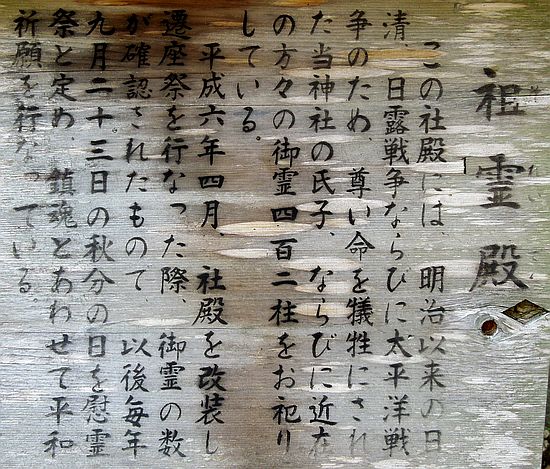 祖霊殿
この社殿には、明治以来の日
清、日露戦争ならびに太平洋戦
争のため、尊い命を犠牲にされ
た当神社の氏子、ならびに近在
の方々の御霊四百二柱をお祀り
している。
平成六年四月、社殿を改装し
遷座祭を行なった際、御霊の数
が確認されたもので以後毎年
九月二十三日の秋分の日を慰霊
祭と定め、鎮魂とあわせて平和
祈願を行なっている。